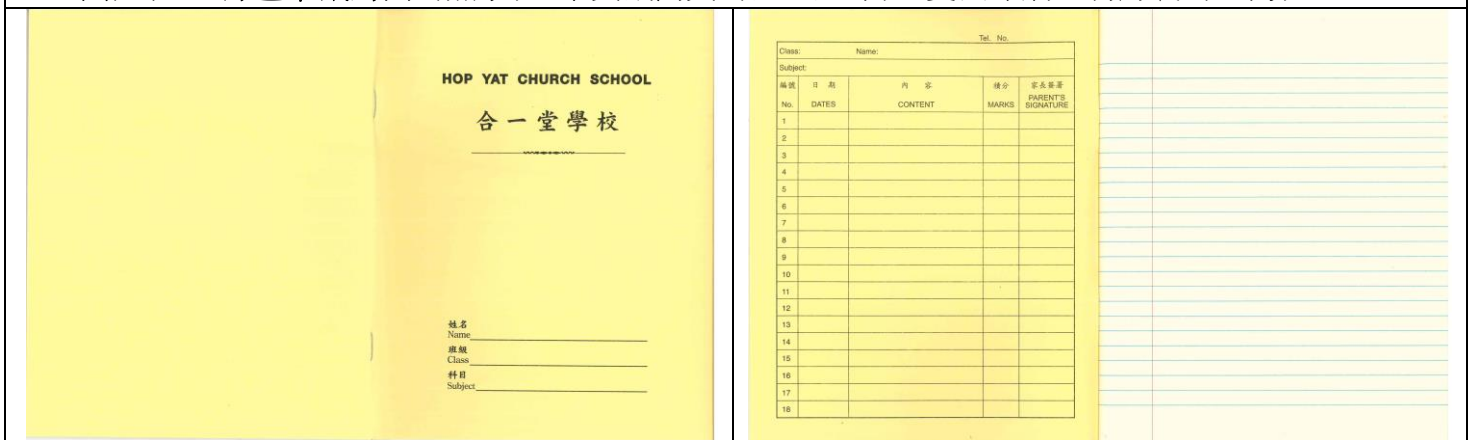 HOP YAT CHURCH SCHOOL
合一堂學校
姓名
Name
班級
Class
科目
Subject
Tel. No.
Class: Name:
Subject:
編號 日期 內容 積分 家長簽署
No. DATES CONTENT MARKS PARENT'S SIGNATURE
1
2
3
4
5
6
7
8
9
10
11
12
13
14
15
16
17
18